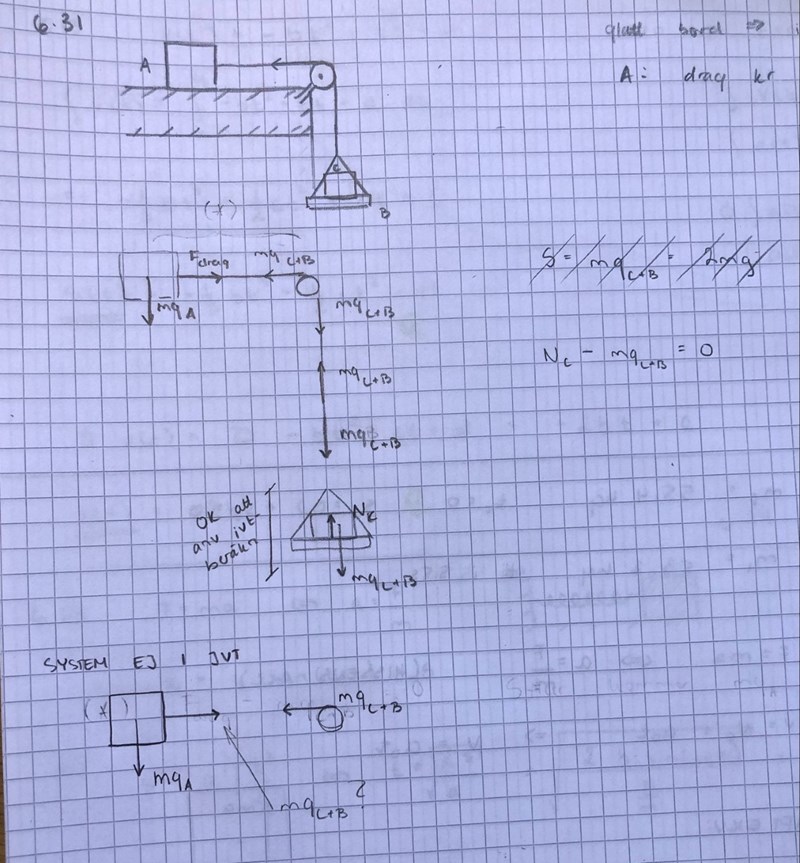 6.31
glatt bord ⇒
A: drag kr
A
C
B
(*)
F drag
mg C+B
mg A
mg C+B
S = mg C+B = 2mg
N C - mg C+B = 0
mg C+B
mg C+B
OK att
anv jvt-
beräkn
N C
mg C+B
SYSTEM EJ I JVT
(*)
mg C+B
mg A
mg C+B ?